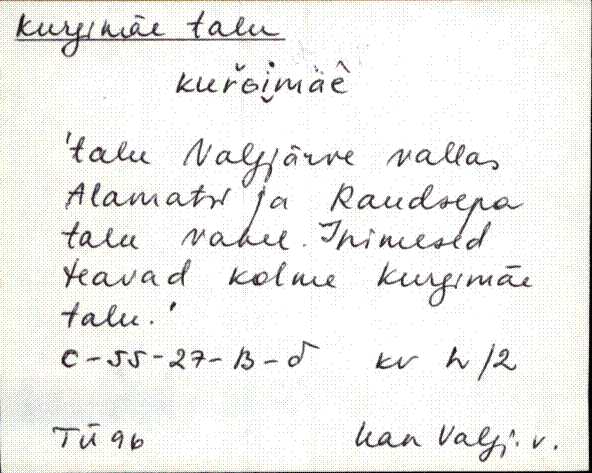 Kurgimäe talu
kuřGi̮mäê
'talu Valgjärve vallas
Alamatsi ja Raudsepa
talu vahel. Inimesed
teavad kolme Kurgimäe
talu.'
C-55-27-B-d kv h/2
TÜ 96 Kan Valgj. v.